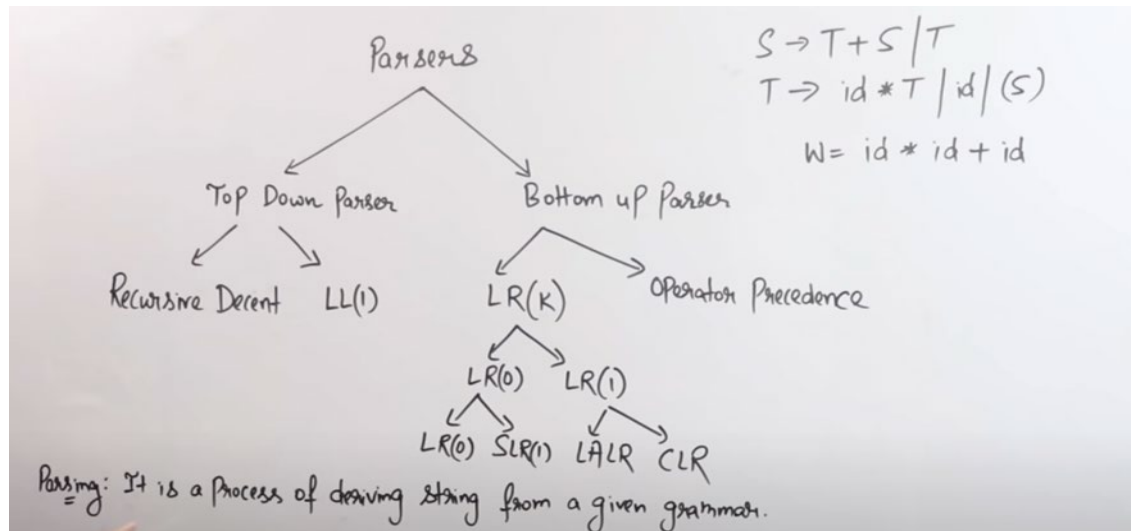 Parsers
S → T + S | T
T → id * T | id | (S)
W = id * id + id
Top Down Parser Bottom up Parser
Recursive Decent LL(1) LR(K) Operator Precedence
LR(0) LR(1)
LR(0) SLR(1) LALR CLR
Parsing: It is a Process of deriving string from a given grammar.